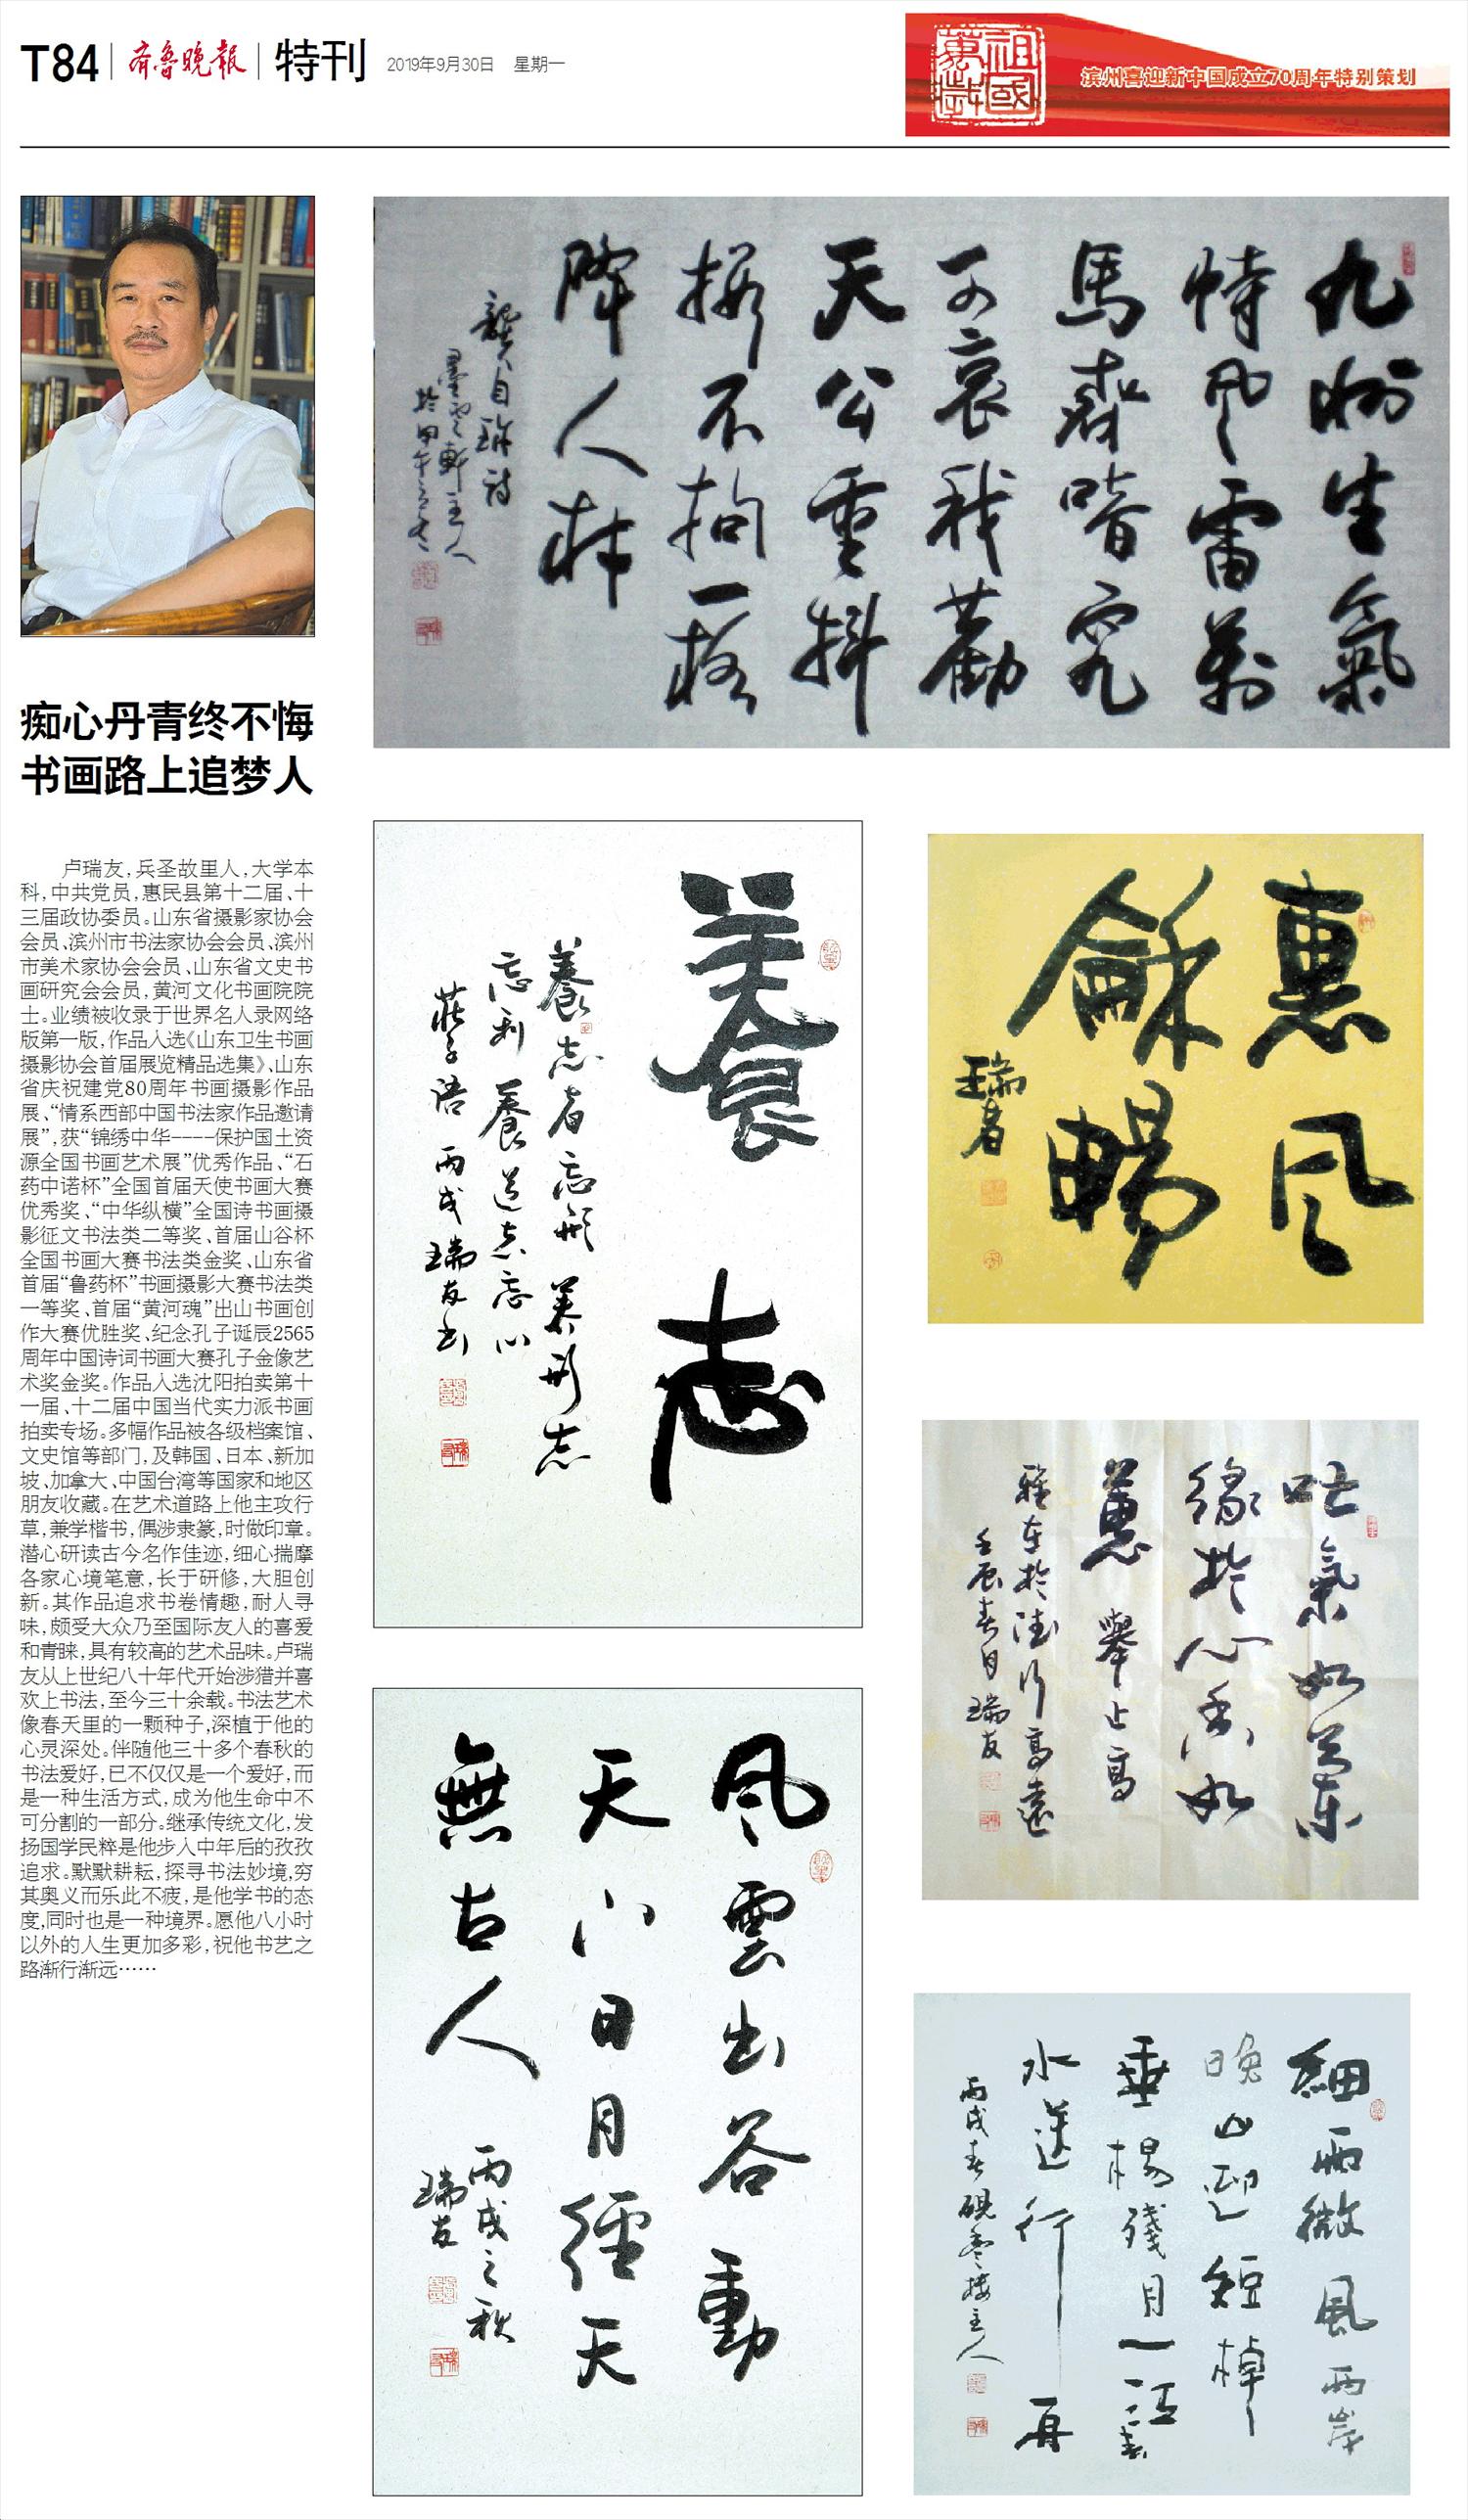 T84 齐鲁晚报 特刊 2019年9月30日 星期一
祖國萬歲
滨州喜迎新中国成立70周年特别策划
九州生氣
恃風雷萬
馬齊喑究
可哀我勸
天公重抖
擻不拘一格
降人材
龔自珍詩
墨雲軒主人
於甲午之冬
痴心丹青终不悔
书画路上追梦人
卢瑞友,兵圣故里人,大学本
科,中共党员,惠民县第十二届、十
三届政协委员。山东省摄影家协会
会员、滨州市书法家协会会员、滨州
市美术家协会会员、山东省文史书
画研究会会员,黄河文化书画院院
士。业绩被收录于世界名人录网络
版第一版,作品入选《山东卫生书画
摄影协会首届展览精品选集》、山东
省庆祝建党80周年书画摄影作品
展、“情系西部中国书法家作品邀请
展”,获“锦绣中华----保护国土资
源全国书画艺术展”优秀作品、“石
药中诺杯”全国首届天使书画大赛
优秀奖、“中华纵横”全国诗书画摄
影征文书法类二等奖、首届山谷杯
全国书画大赛书法类金奖、山东省
首届“鲁药杯”书画摄影大赛书法类
一等奖、首届“黄河魂”出山书画创
作大赛优胜奖、纪念孔子诞辰2565
周年中国诗词书画大赛孔子金像艺
术奖金奖。作品入选沈阳拍卖第十
一届、十二届中国当代实力派书画
拍卖专场。多幅作品被各级档案馆、
文史馆等部门,及韩国、日本、新加
坡、加拿大、中国台湾等国家和地区
朋友收藏。在艺术道路上他主攻行
草,兼学楷书,偶涉隶篆,时做印章。
潜心研读古今名作佳迹,细心揣摩
各家心境笔意,长于研修,大胆创
新。其作品追求书卷情趣,耐人寻
味,颇受大众乃至国际友人的喜爱
和青睐,具有较高的艺术品味。卢瑞
友从上世纪八十年代开始涉猎并喜
欢上书法,至今三十余载。书法艺术
像春天里的一颗种子,深植于他的
心灵深处。伴随他三十多个春秋的
书法爱好,已不仅仅是一个爱好,而
是一种生活方式,成为他生命中不
可分割的一部分。继承传统文化,发
扬国学民粹是他步入中年后的孜孜
追求。默默耕耘,探寻书法妙境,穷
其奥义而乐此不疲,是他学书的态
度,同时也是一种境界。愿他八小时
以外的人生更加多彩,祝他书艺之
路渐行渐远······
養志
養志者忘形養形志
忘利養道志忘心
莊子語丙戌瑞友書
惠風
龢暢
瑞友
吐氣如蘭
緣於心香如
蕙舉止高
雅在於德行高遠
壬辰春月瑞友
風雲出谷動
天心日月經天
無古人
丙戌之秋
瑞友
細雨微風兩岸
晚山迎短棹
垂楊殘月一江春
水送行舟
丙戌春硯棗樓主人